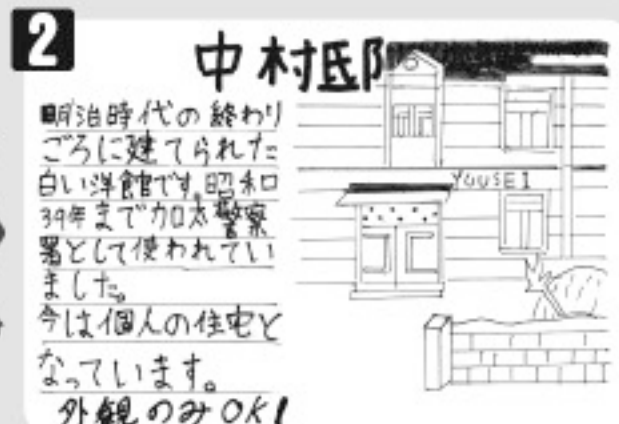 2
中村邸
明治時代の終わり
ごろに建てられた
白い洋館です。昭和
39年まで加太警察
署として使われてい
ました。
今は個人の住宅と
なっています。
外観のみOK!
YUUSEI